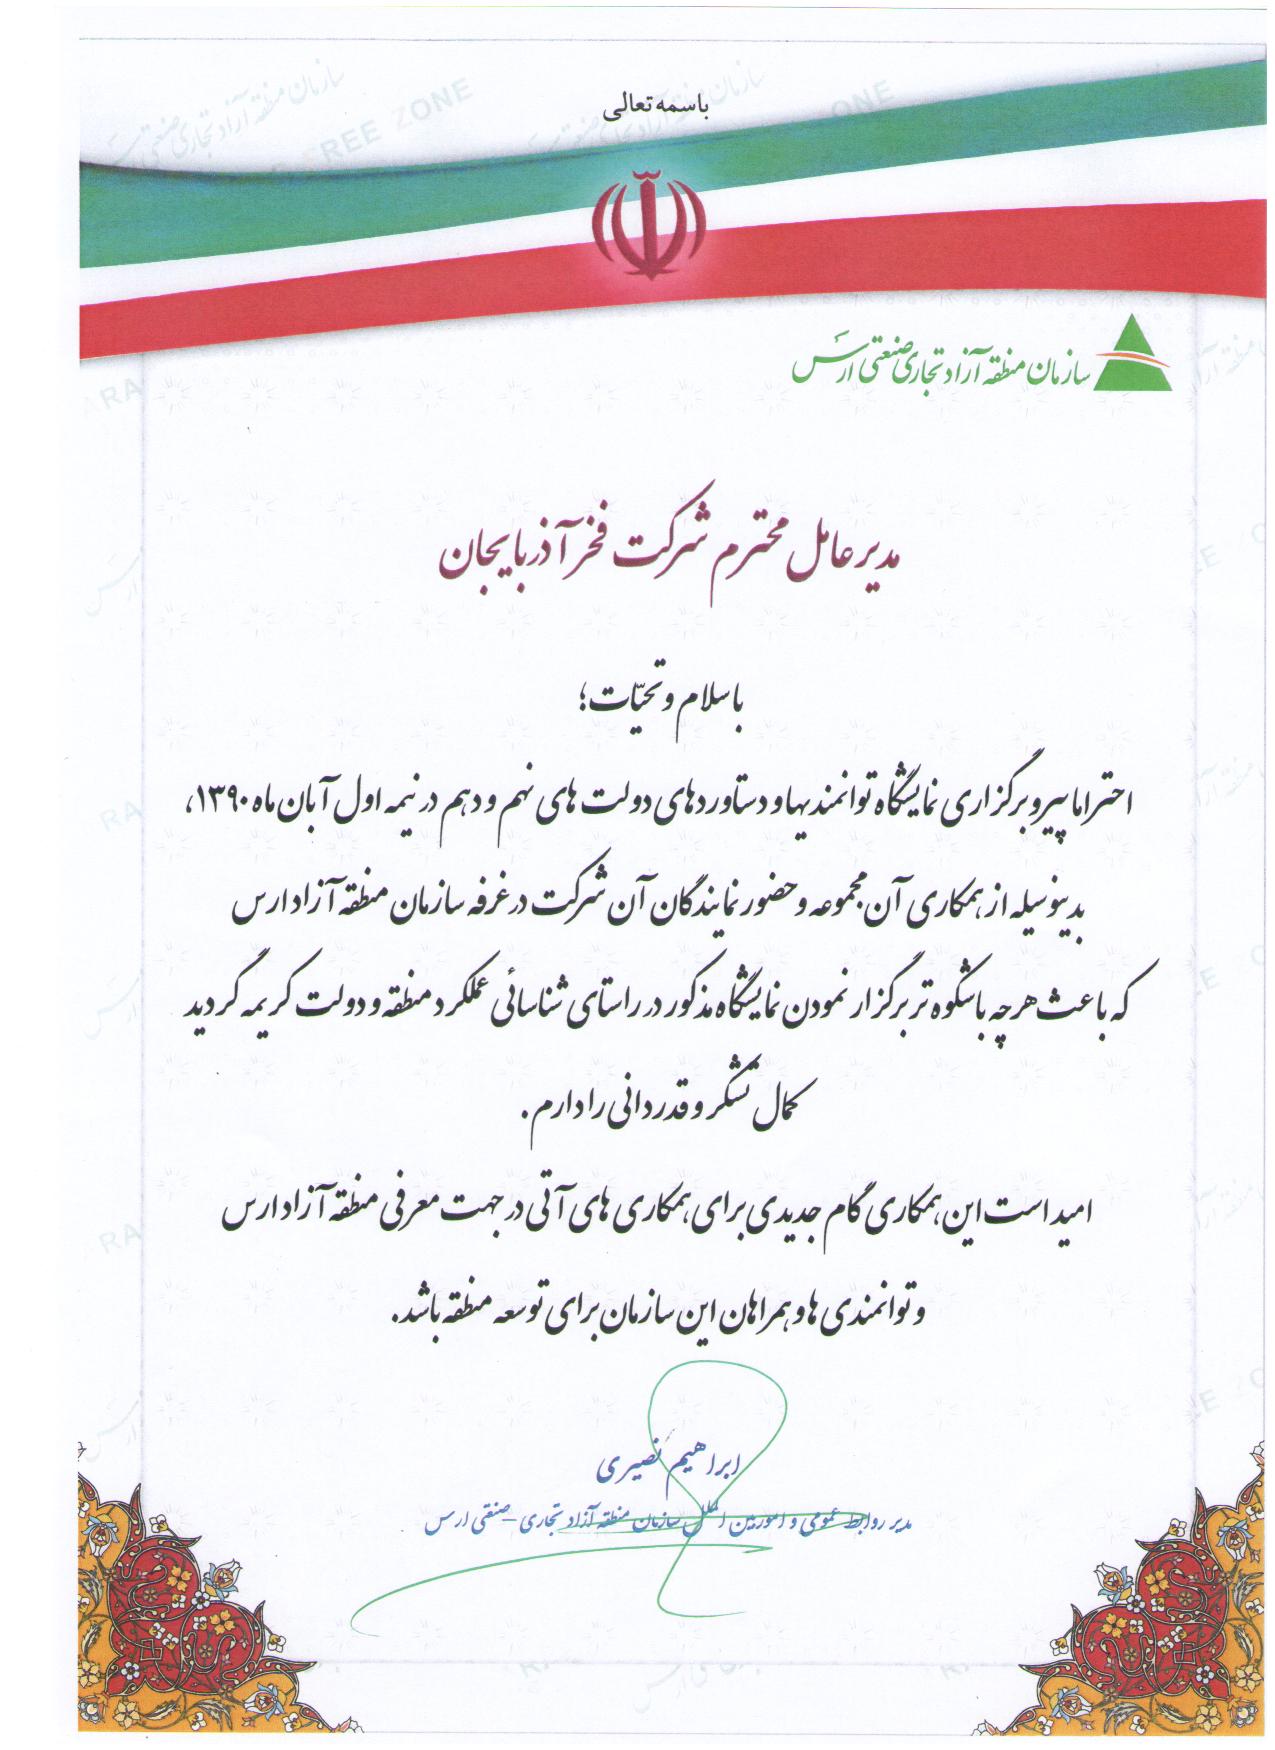 باسمه تعالی
سازمان منطقه آزاد تجاری صنعتی ارس
مدیر عامل محترم شرکت فخر آذربایجان
با سلام و تحیّات؛
احتراما پیرو برگزاری نمایشگاه توانمندیها و دستاوردهای دولت های نهم و دهم در نیمه اول آبان ماه ۱۳۹۰،
بدینوسیله از همکاری آن مجموعه و حضور نمایندگان آن شرکت در غرفه سازمان منطقه آزاد ارس
که باعث هرچه باشکوه تر برگزار نمودن نمایشگاه مذکور در راستای شناسائی عملکرد منطقه و دولت کریمه گردید
کمال تشکر و قدردانی را دارم.
امید است این همکاری گام جدیدی برای همکاری های آتی در جهت معرفی منطقه آزاد ارس
و توانمندی ها و همراهان این سازمان برای توسعه منطقه باشد.
ابراهیم نصیری
مدیر روابط عمومی و امور بین الملل سازمان منطقه آزاد تجاری - صنعتی ارس